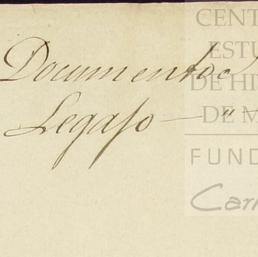 Documentos
Legajo — " —
CENT
ESTU
DE HI
DE M
FUND
Car